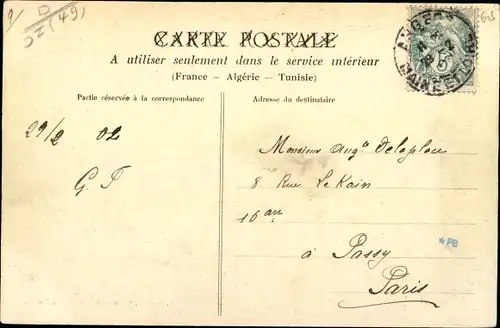 CARTE POSTALE
A utiliser seulement dans le service intérieur
(France - Algérie - Tunisie)
Partie réservée à la correspondance
Adresse du destinataire
29/2 02
G T
Monsieur Augte Delaplace
8 Rue Le Kain
16 arr
à Passy
Paris
*PB
(49)
ANGERS